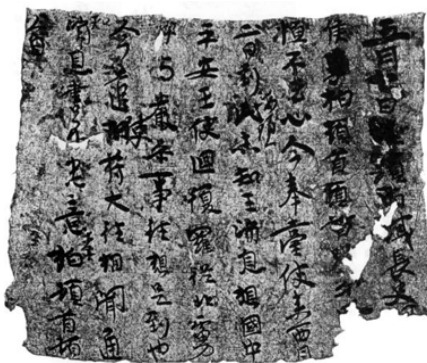 五月七日 西域長史
侯李柏頓首頓首
恒不去心今奉臺使來西月
二日到此未知王消息想國中
海頭
平安王使迴復羅從北虜
中与嚴參事往想是到也
今遣使苻大往相聞通
知消息書不悉意李柏頓首頓
首